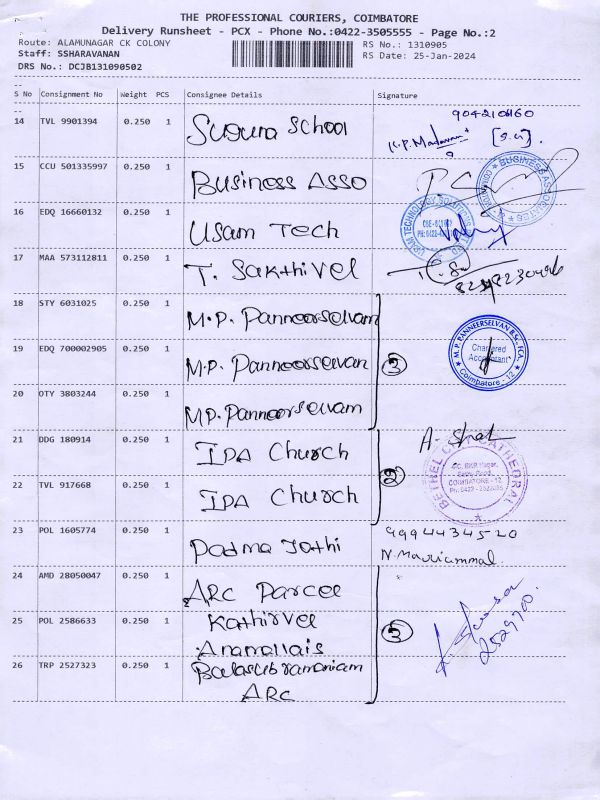 THE PROFESSIONAL COURIERS, COIMBATORE
Delivery Runsheet - PCX - Phone No.:0422-3505555 - Page No.:2
Route: ALAMUNAGAR CK COLONY
RS No.: 1310905
Staff: SSHARAVANAN
RS Date: 25-Jan-2024
DRS No.: DCJB131090502
S No Consignment No Weight PCS Consignee Details Signature
14 TVL 9901394 0.250 1 Suguna School
15 CCU 501335997 0.250 1 Business Asso
BUSINESS ASSOCIATES
16 EDQ 16660132 0.250 1 Usam Tech
USAM TECHNOLOGY SOLUTIONS
17 MAA 573112811 0.250 1 T. Sakthivel
18 STY 6031025 0.250 1 M.P. Panneerselvam
19 EDQ 700002905 0.250 1 M.P. Panneerselvan 3
M.P. PANNEERSELVAN B.Sc., FCA.
Chartered
Accountant
Coimbatore - 12
20 OTY 3803244 0.250 1 M.P. Panneerselvam
21 DDG 180914 0.250 1 IPA Church
22 TVL 917668 0.250 1 IPA Church 2
BETHEL CATHEDRAL
COIMBATORE - 12
23 POL 1605774 0.250 1 Padma Jothi 9994434520
N. Mariammal
24 AMD 28050047 0.250 1 ARC Parcel
25 POL 2586633 0.250 1 Kathirvel 3
Anamallais
26 TRP 2527323 0.250 1 Balasubramaniam
ARC